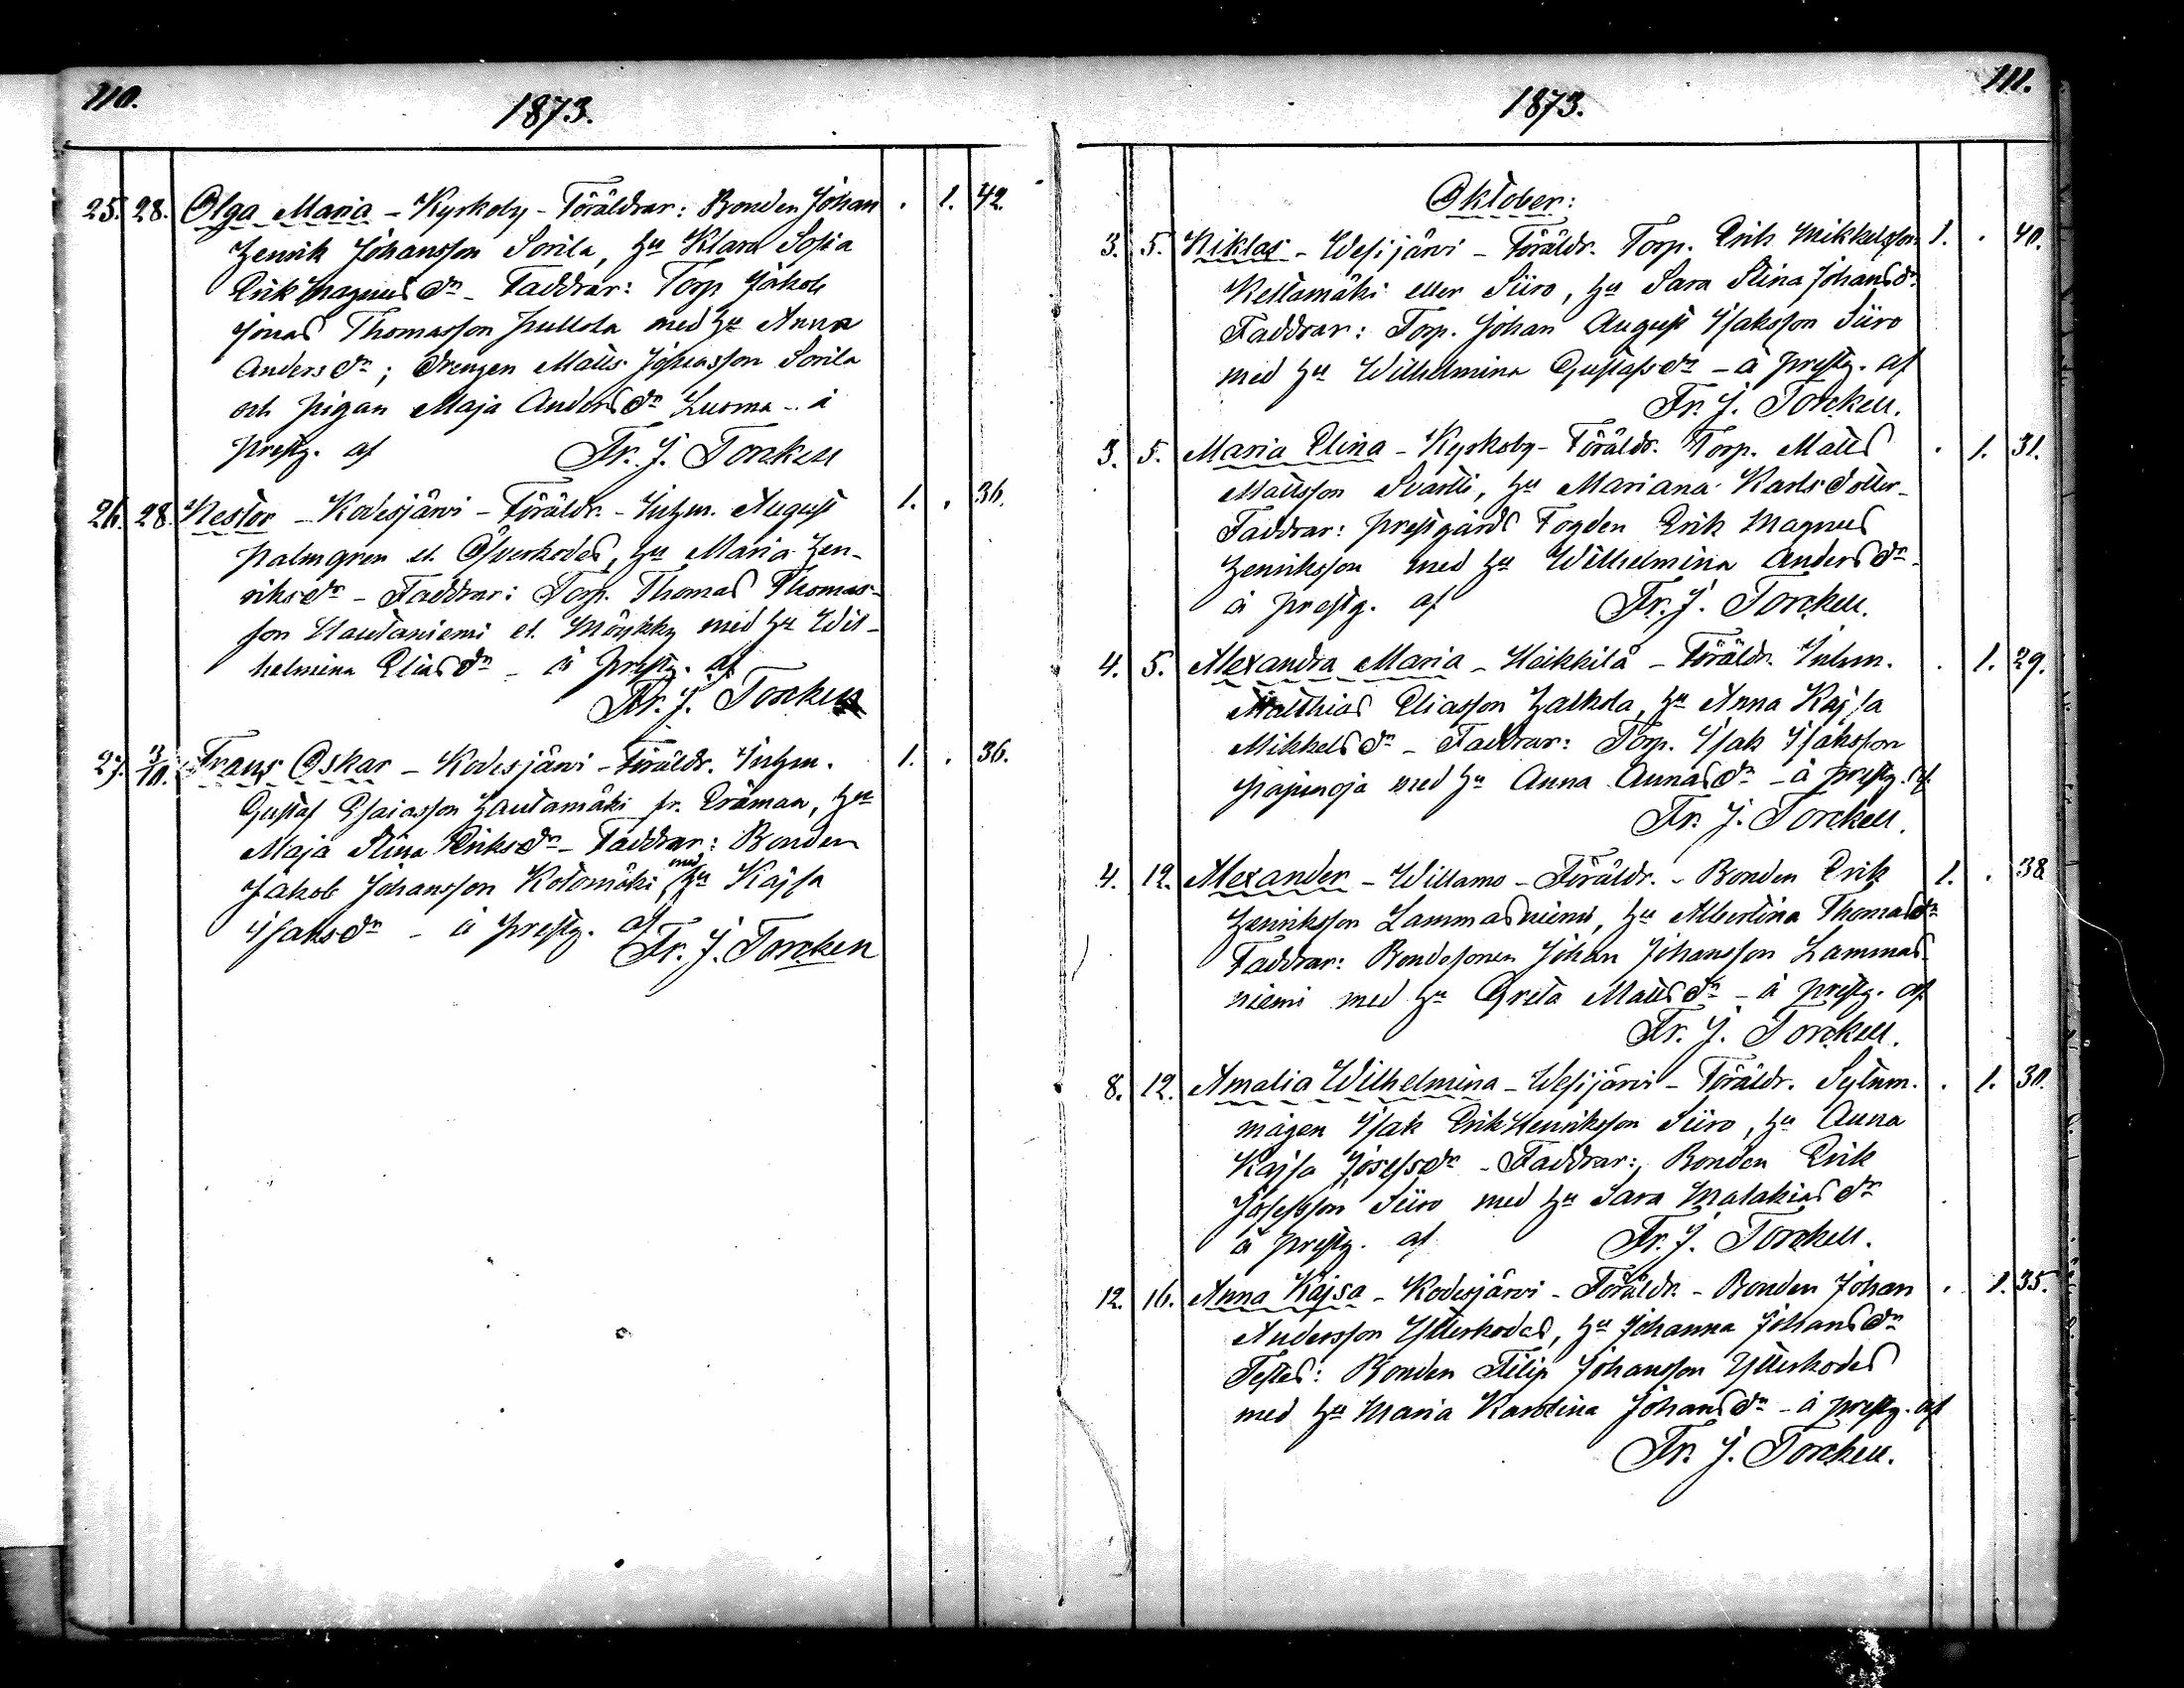 110.
1873.
25. 28. Olga Maria - Kyrkoby - Föräldrar: Bonden Johan . 1. 42.
Henrik Johansson Sorila, Hu Klara Sofia
Erik Magnus dr - Faddrar: Torp Jakob
Jonas Thomasson Pullola med Hu Anna
Anders dr; Drengen Matts Johansson Sorila
och pigan Maja Anders dr Luoma - å
prestg. af Fr. J. Torckell
26. 28. Nestor - Kodesjärvi - Föräldr. - Inhm. August 1. . 36.
Palmgren el. Öfverkodes, Hu Maria Hen-
riks dr - Faddrar: Torp. Thomas Thomas-
son Hautaniemi el. Möykky med Hu Wil-
helmina Elias dr - å prestg. af
Fr. J. Torckell
27. 3/10. Frans Oskar - Kodesjärvi - Föräldr. Inhm. 1. . 36.
Gustaf Esaiasson Hautamäki fr. Kräman, Hu
Maja Stina Eriks dr - Faddrar: Bonden
Jakob Johansson Kotomäki med Hu Kajsa
Isaks dr - å prestg. af
Fr. J. Torckell
111.
1873.
Oktober:
3. 5. Niklas - Wesijärvi - Föräldr. Torp. Erik Mikkelsson 1. . 40.
Keltamäki eller Siiro, Hu Sara Stina Johans dr
Faddrar: Torp. Johan August Isaksson Siiro
med Hu Wilhelmina Gustafs dr - å prestg. af
Fr. J. Torckell.
3. 5. Maria Elina - Kyrkoby - Föräldr. Torp. Matts . 1. 31.
Mattsson Svartti, Hu Mariana Karls dotter -
Faddrar: Prestgårds Fogden Erik Magnus
Henriksson med Hu Wilhelmina Anders dr -
å prestg. af Fr. J. Torckell.
4. 5. Alexandra Maria - Heikkilä - Föräldr. Inhm. . 1. 29.
Matthias Eliasson Halkola, Hu Anna Kajsa
Mikkels dr - Faddrar: Torp. Isak Isaksson
Pajunoja med Hu Anna Annas dr - å prestg. af
Fr. J. Torckell.
4. 12. Alexander - Willamo - Föräldr. - Bonden Erik 1. . 38
Henriksson Lammasniemi, Hu Albertina Thomas dr
Faddrar: Bondesonen Johan Johansson Lammas-
niemi med Hu Greta Matts dr - å prestg. af
Fr. J. Torckell.
8. 12. Amalia Wilhelmina - Wesijärvi - Föräldr. Sytnm. . 1. 30.
mågen Isak Erik Henriksson Siiro, Hu Anna
Kajsa Josefs dr - Faddrar: Bonden Erik
Josefsson Siiro med Hu Sara Malakias dr
å prestg. af Fr. J. Torckell.
12. 16. Anna Kajsa - Kodesjärvi - Föräldr. - Bonden Johan . 1. 35.
Andersson Ytterkodes, Hu Johanna Johans dr
Testes: Bonden Filip Johansson Ytterkodes
med Hu Maria Karolina Johans dr - å prestg. af
Fr. J. Torckell.